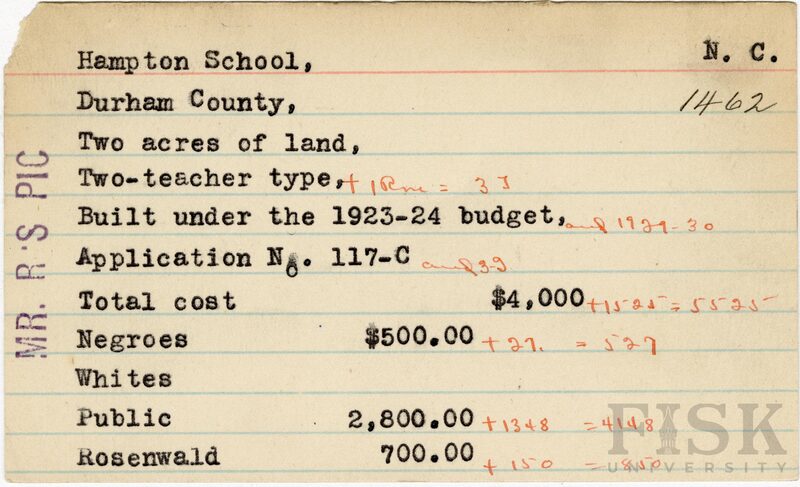 Hampton School, N. C.
Durham County, 1462
Two acres of land,
Two-teacher type, + 1 Rm = 3T
Built under the 1923-24 budget, and 1929-30
Application No. 117-C and 3-J
Total cost $4,000 + 1525 = 5525
Negroes $500.00 + 27. = 527
Whites
Public 2,800.00 + 1348 = 4148
Rosenwald 700.00 + 150 = 850
MR. R'S PIC
FISK
UNIVERSITY